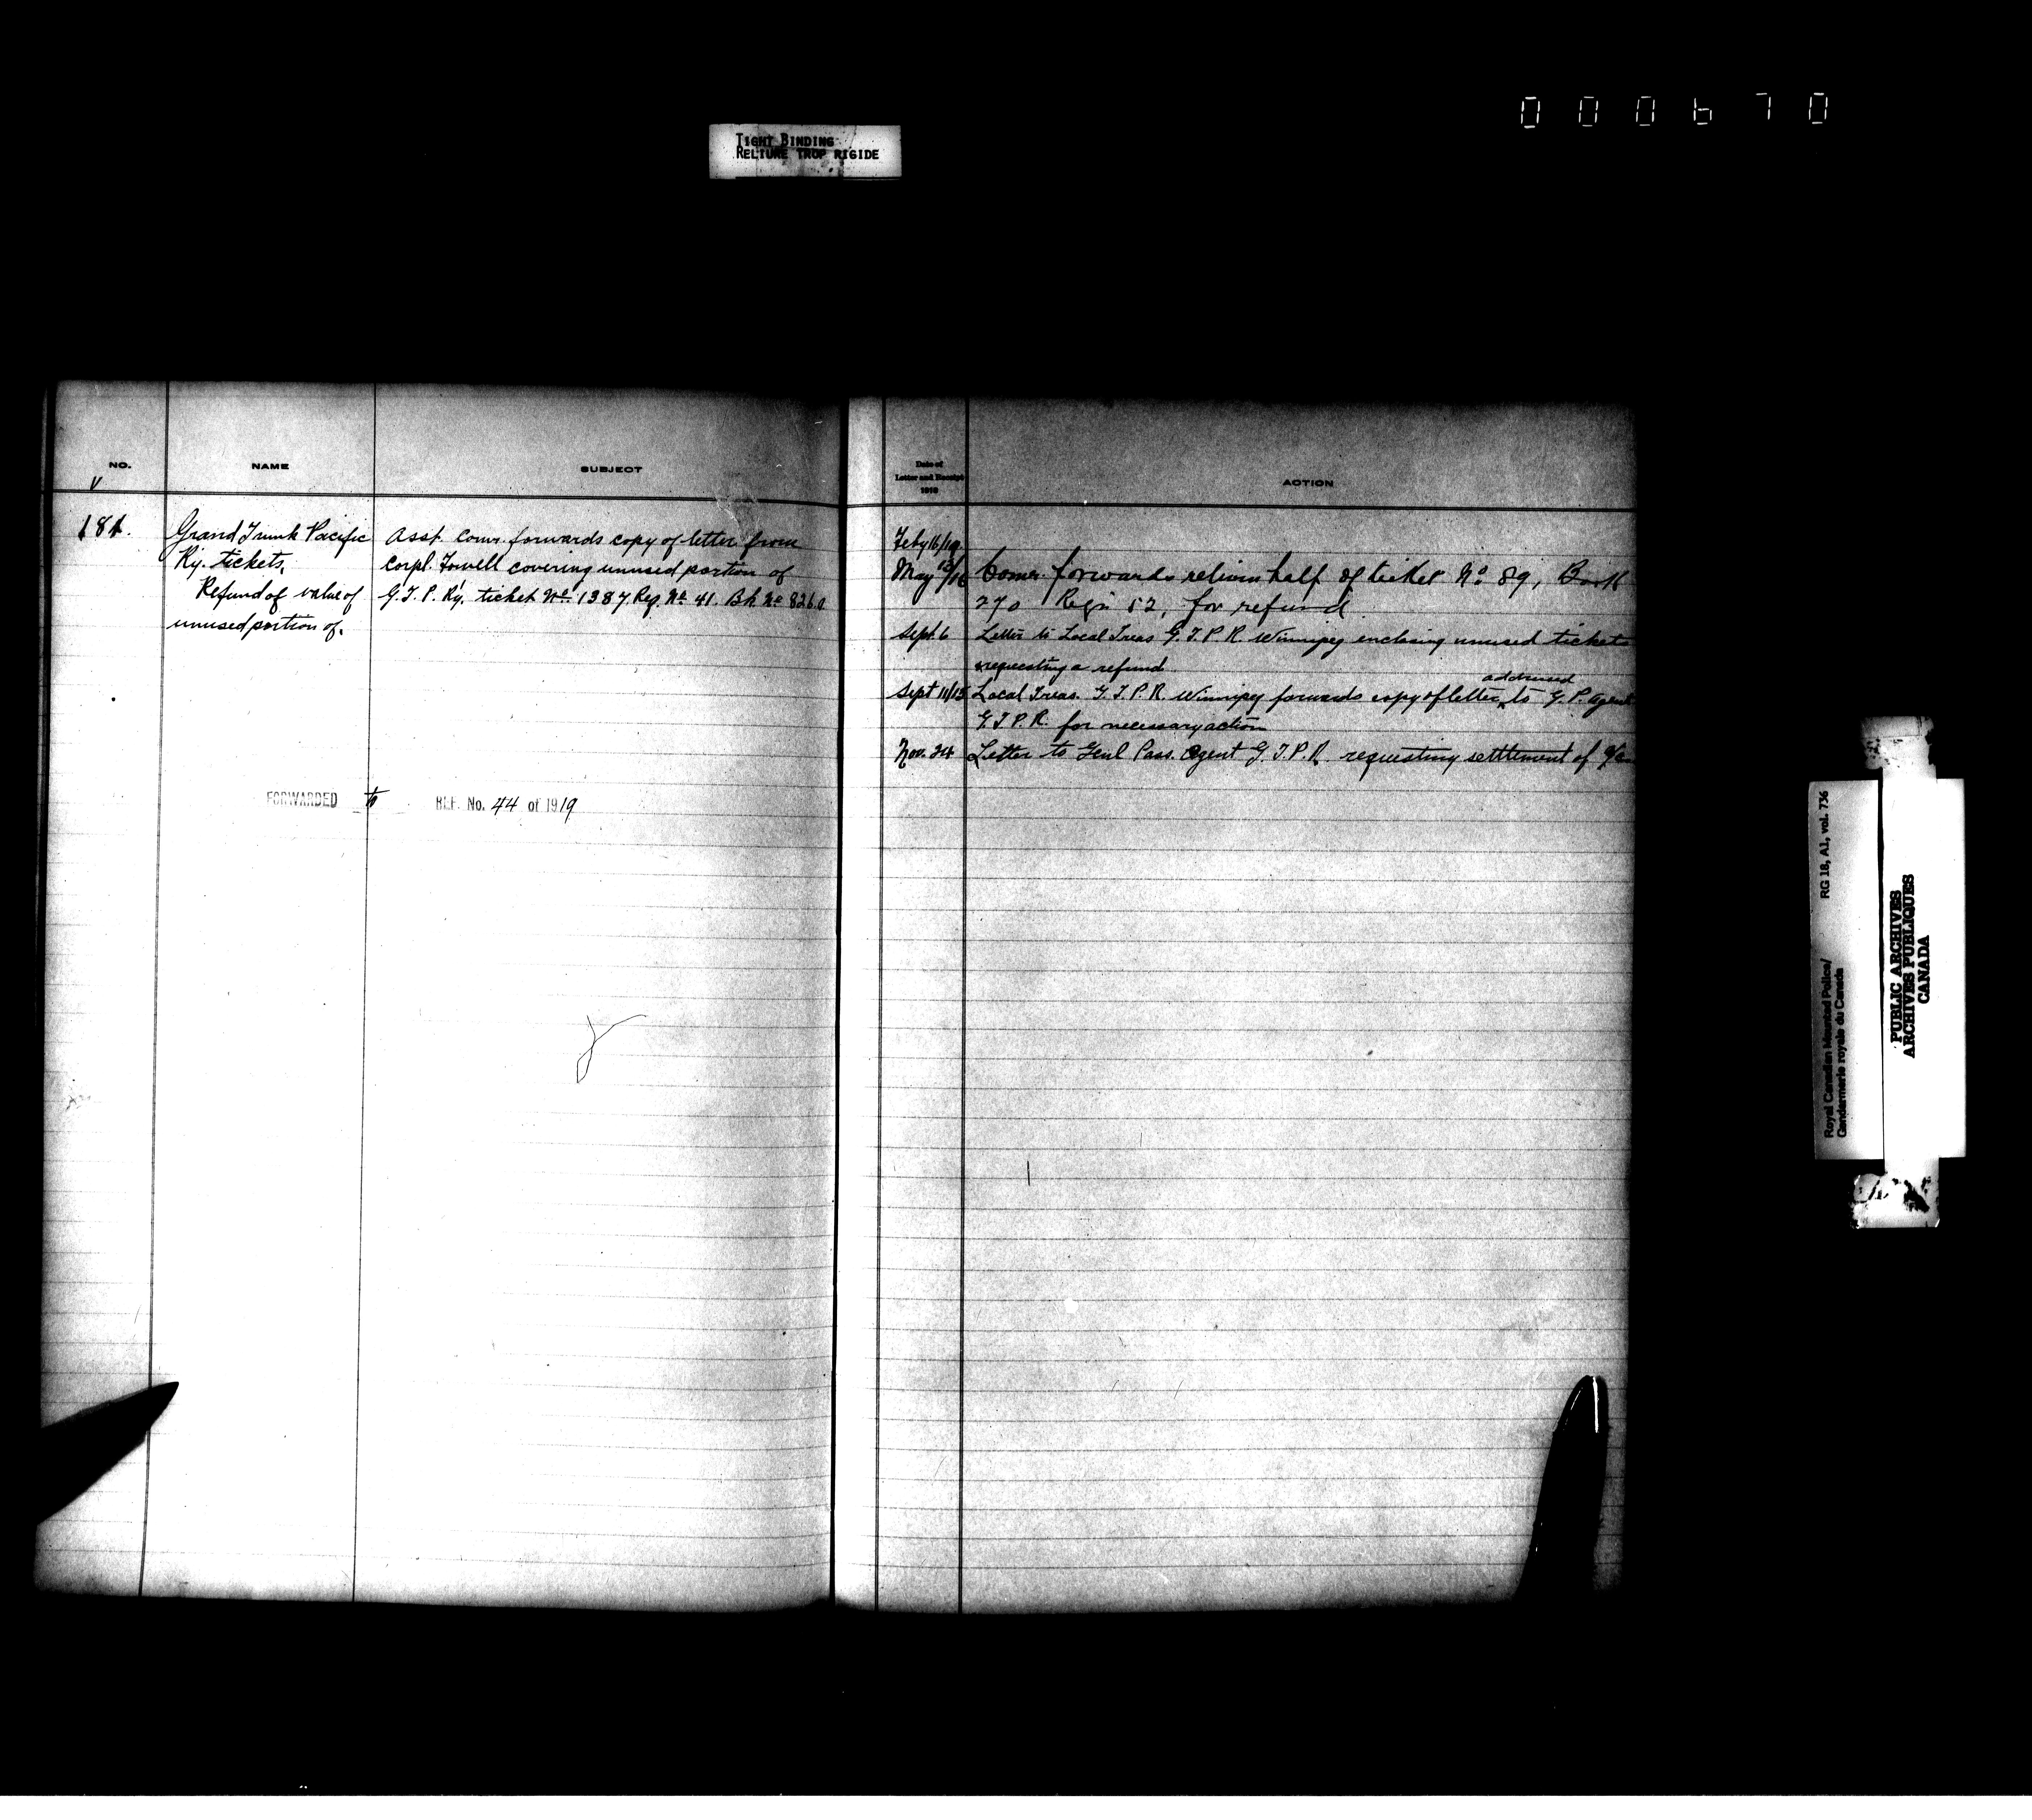 000670
TIGHT BINDING
RELIURE TROP RIGIDE
NO.
NAME
SUBJECT
181.
Grand Trunk Pacific
Ry. tickets.
Refund of value of
unused portion of.
Asst. Comr. forwards copy of letter from
Corpl. Fowell covering unused portion of
G.T.P. Ry. ticket No. 1387 Reg. No. 41. Bk No 826.
FORWARDED to REF. No. 44 of 1919
Date of
Letter and Receipt
1918
ACTION
Feby 16/19.
May 13/16 Comr. forwards return half of ticket No 89, Book
270 Regn 52, for refund
Sept. 6 Letter to Local Treas G.T.P.R. Winnipeg enclosing unused tickets
requesting a refund
addressed
Sept 11/15 Local Treas. G.T.P.R. Winnipeg forwards copy of letter to G.P. Agent
G.T.P.R. for necessary action
Nov. 24 Letter to Genl Pass. Agent G.T.P.R. requesting settlement of
RG 18, A1, vol. 736
Royal Canadian Mounted Police/
Gendarmerie royale du Canada
PUBLIC ARCHIVES
ARCHIVES PUBLIQUES
CANADA